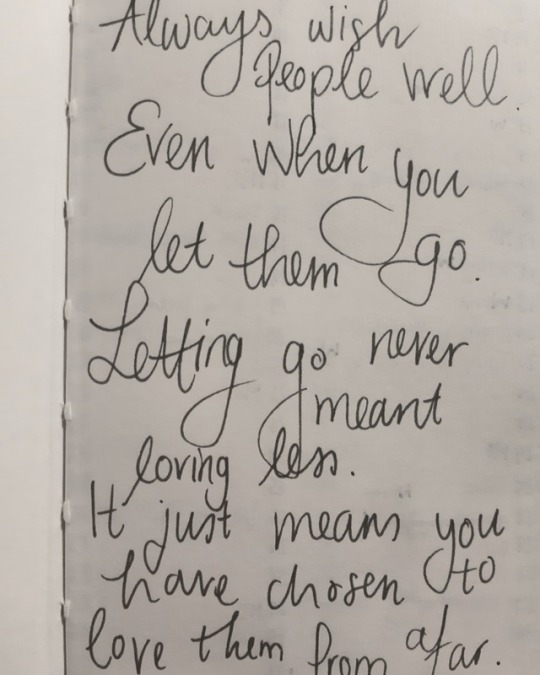 Always wish
People well.
Even when you
let them go.
Letting go never
meant
loving less.
It just means you
have chosen to
love them from afar.